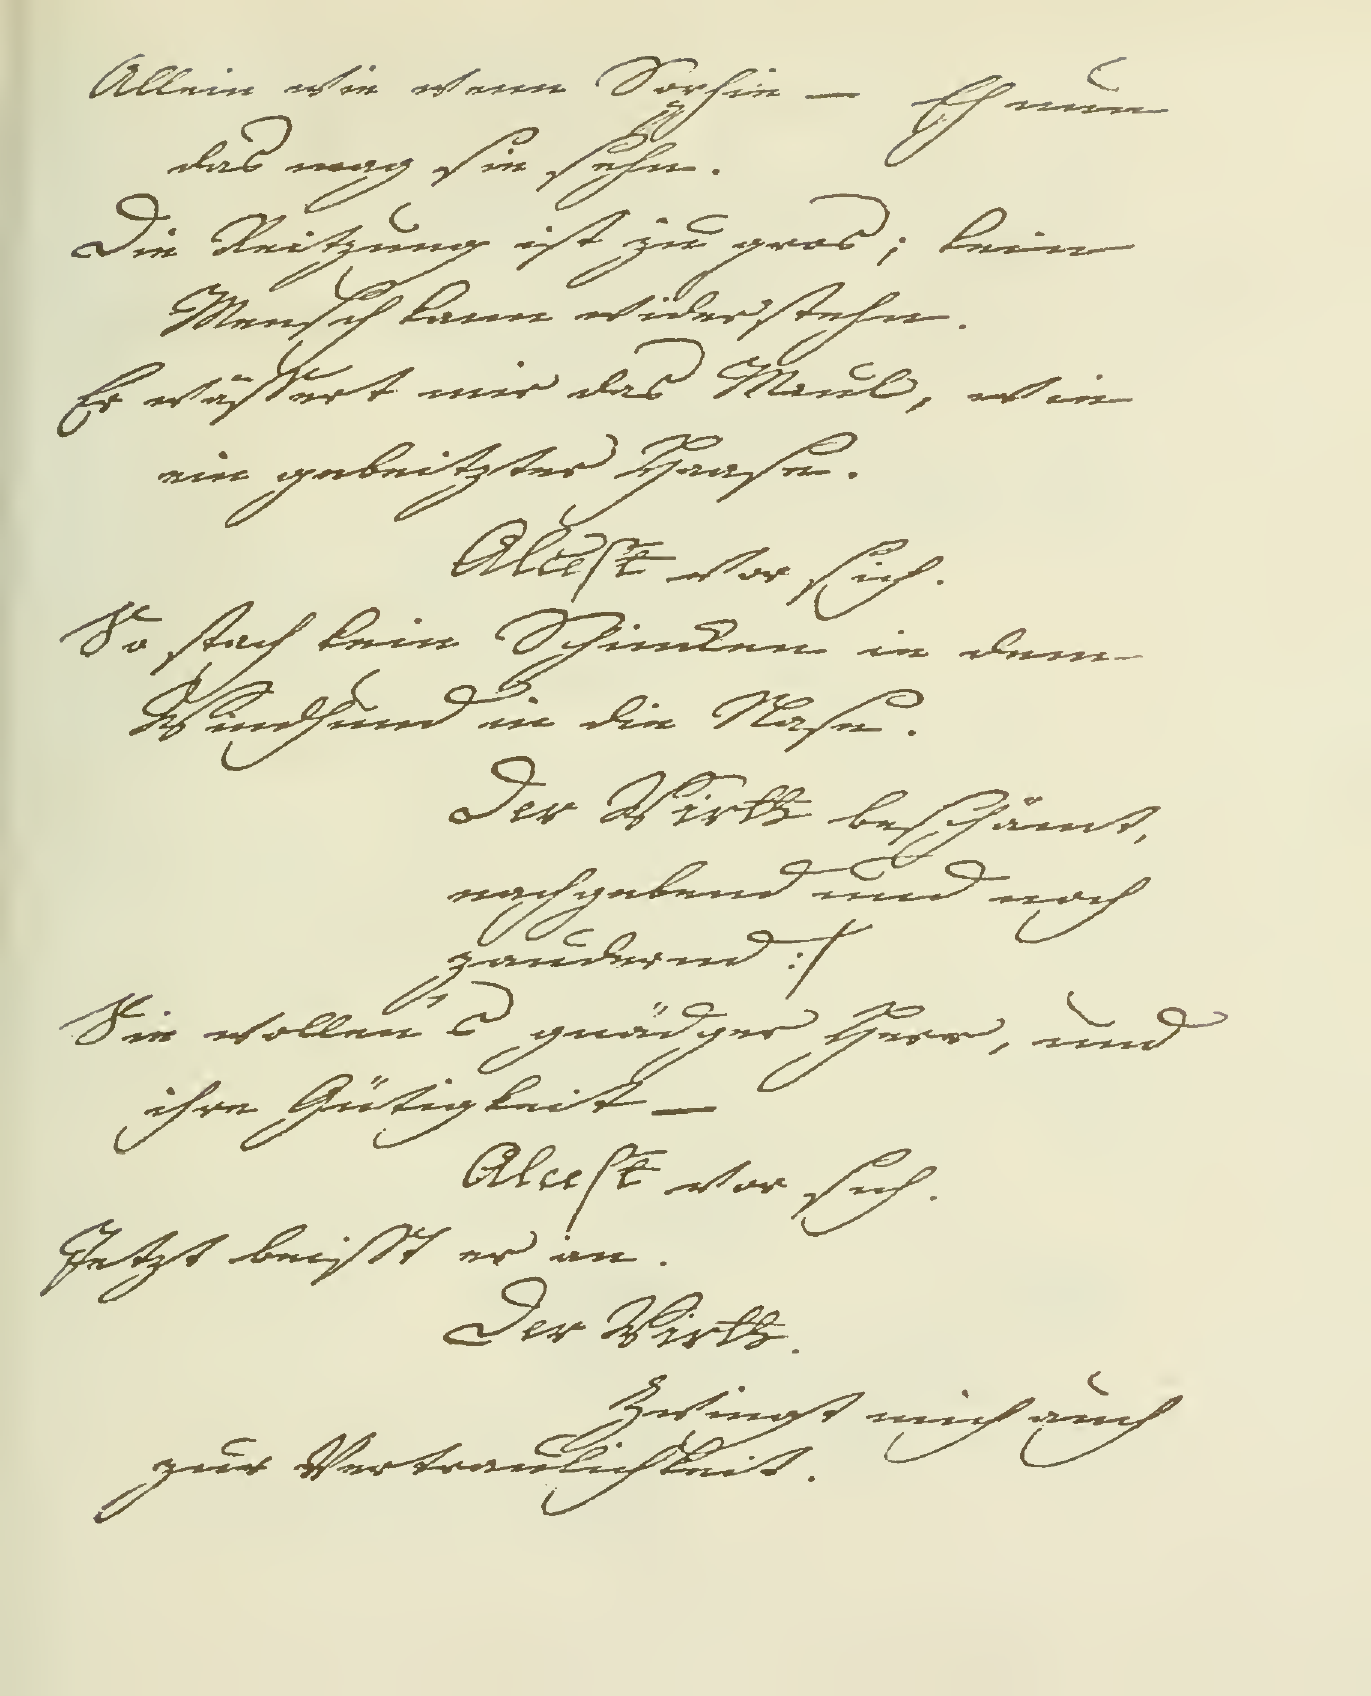 Allein wie wenn Sophie — Eh nun
das mag sie sehn.
Die Reitzung ist zu gros; kein
Mensch kann widerstehn.
Er wässert mir das Maul, wie
ein gebeitzter Haase.
Alceste vor sich.
So stach kein Schincken in dem
Windhund in die Nase.
Der Wirth beschämt,
nachgebend und noch
zaudernd :/
Sie wollen's gnädger Herr, und
ihre Gütigkeit —
Alceste vor sich.
Jetzt beisst er an.
Der Wirth.
Zwingt mich auch
zur Vertraulichkeit.